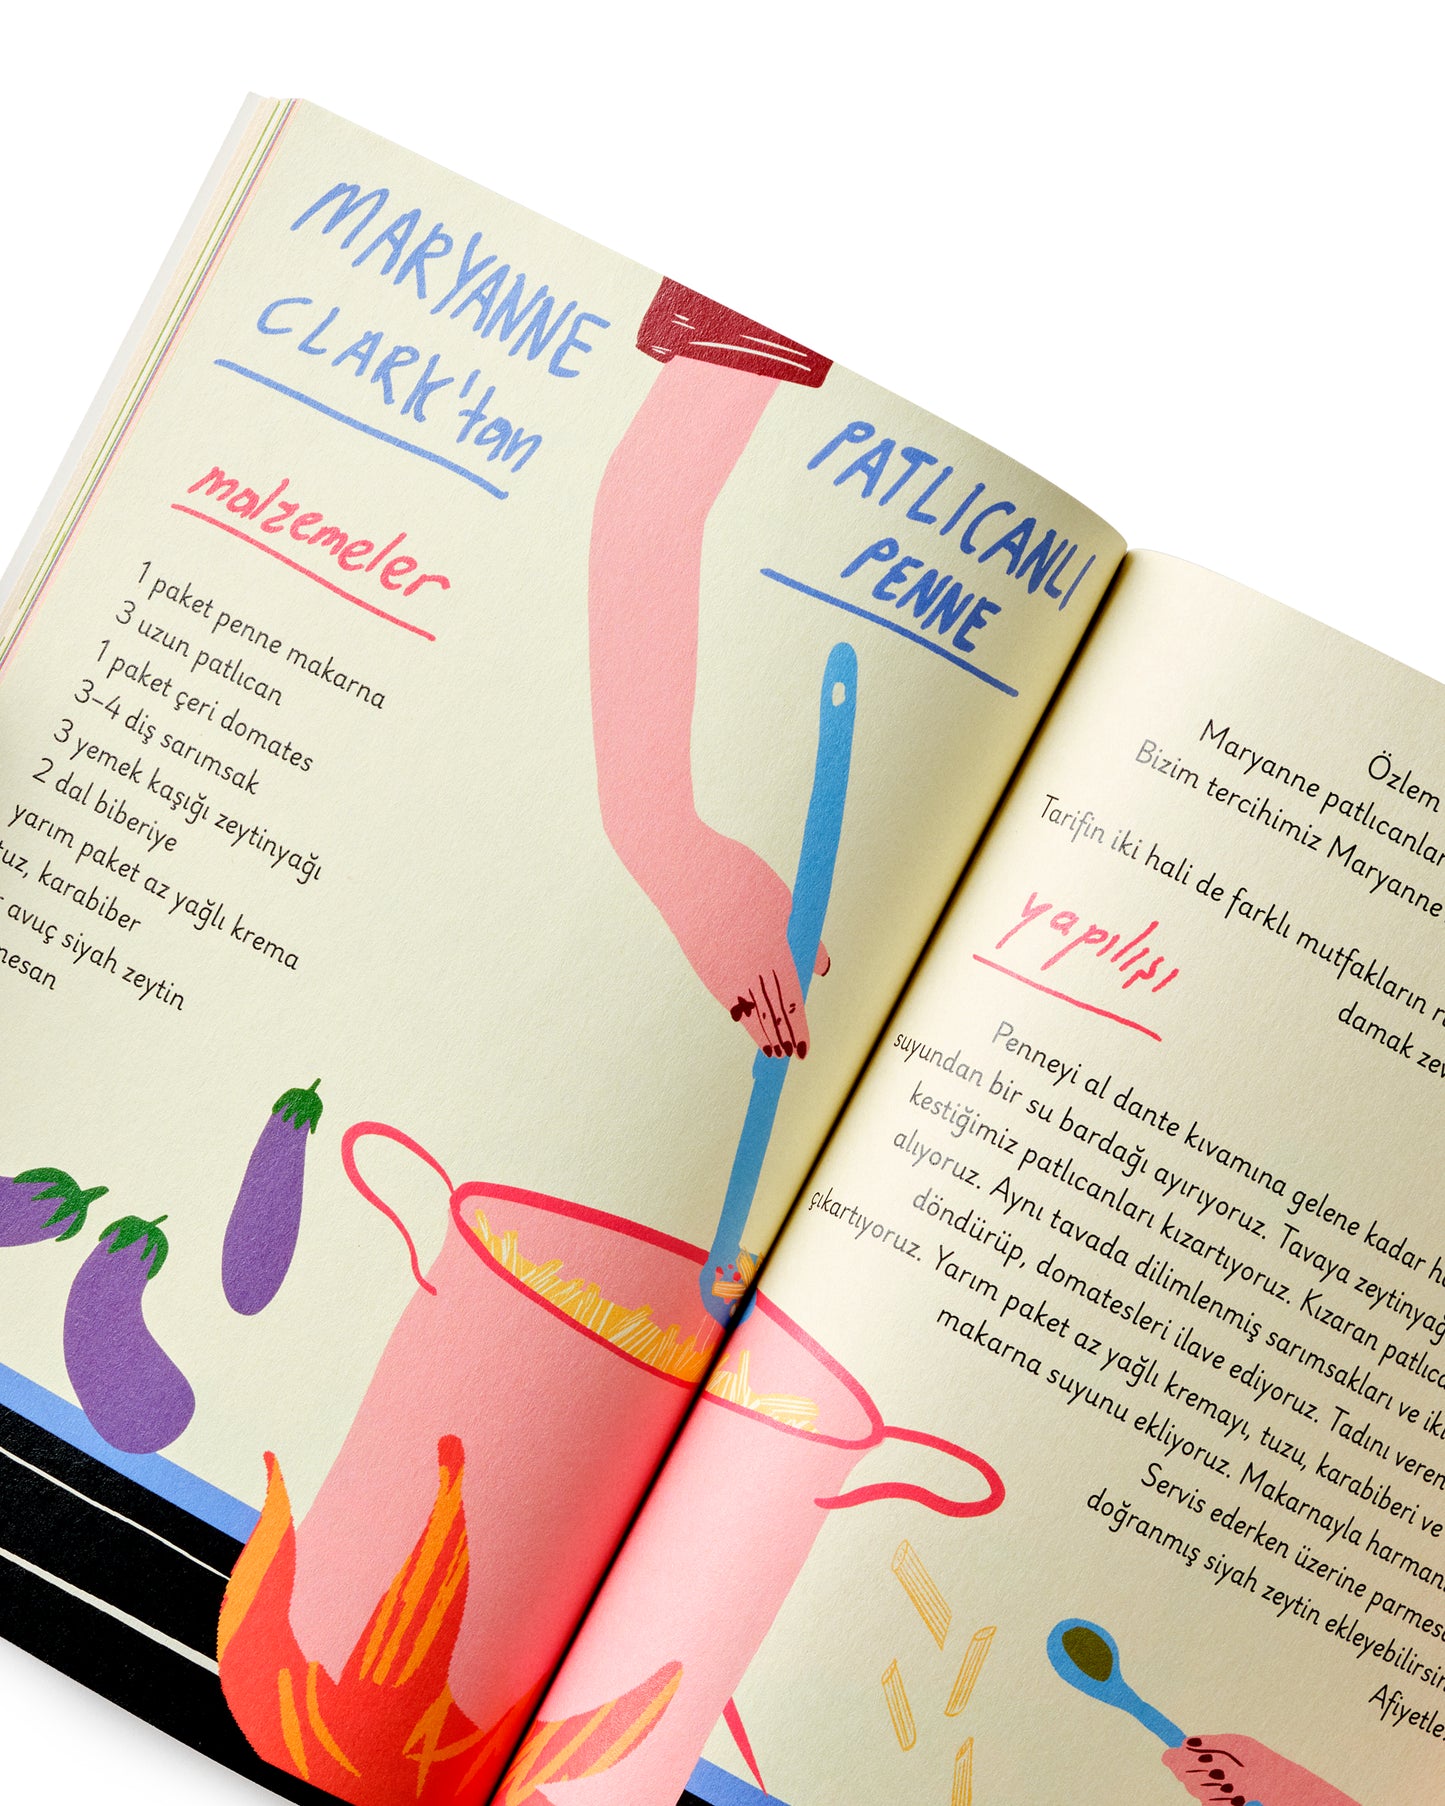 MARYANNE
CLARK'tan
PATLICANLI
PENNE
malzemeler
1 paket penne makarna
3 uzun patlıcan
1 paket çeri domates
3–4 diş sarımsak
3 yemek kaşığı zeytinyağı
2 dal biberiye
yarım paket az yağlı krema
karabiber
avuç siyah zeytin
Özlem
Maryanne patlıcanlar
Bizim tercihimiz Maryanne
Tarifin iki hali de farklı mutfakların
damak
yapılışı
Penneyi al dante kıvamına gelene kadar
suyundan bir su bardağı ayırıyoruz. Tavaya
kestiğimiz patlıcanları kızartıyoruz. Kızaran
alıyoruz. Aynı tavada dilimlenmiş sarımsakları ve
döndürüp, domatesleri ilave ediyoruz. Tadını
çıkartıyoruz. Yarım paket az yağlı kremayı, tuzu, karabiberi ve
makarna suyunu ekliyoruz. Makarnayla
Servis ederken üzerine
doğranmış siyah zeytin